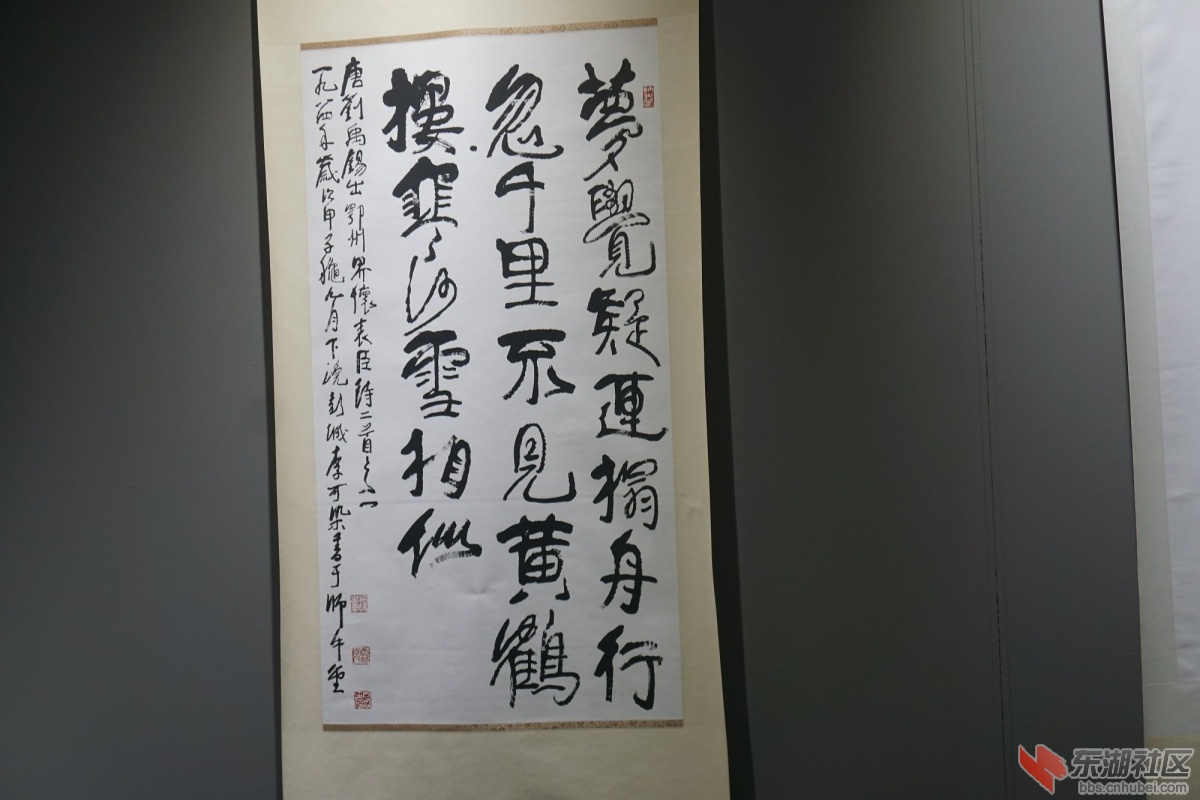 夢覺疑連榻舟行
忽千里不見黄鶴
樓寒沙雪相似
唐劉禹錫出鄂州界懷表臣詩二首之二
一九八四年歲次甲子龝九月下浣彭城李可染書于師牛堂
东湖社区
bbs.cnhubei.com